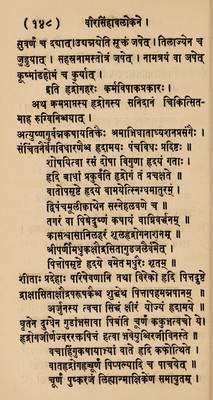 (१५८) वीरसिंहावलोकने ।
सुवर्णं च दद्यात्। उद्यन्नद्येति सूक्तं जपेत् । तिलाज्येन च
जुहुयात् । सहस्रनामस्तोत्रं जपेत् । नामत्रयं वा जपेत्
कूष्मांडहोमं च कुर्यात् ।
इति हृद्रोगहरः कर्मविपाकप्रकारः ।
अथ क्रमप्राप्तस्य हृद्रोगस्य सनिदानं चिकित्सित-
माह रुग्विनिश्चयात् ।
अत्युष्णगुर्वन्नकषायतिक्तैः श्रमाभिघाताध्यशनप्रसंगैः ।
संचिंतनैर्वेगविधारणैश्च हृदामयः पंचविधः प्रदिष्टः ॥
शोषयित्वा रसं दोषा विगुणा हृदयं गताः ।
हृदि बाधां प्रकुर्वंति हृद्रोगं तं प्रचक्षते ॥
वातोपसृष्टे हृदये वामयेत्स्निग्धमातुरम् ।
द्विपंचमूलीक्वाथेन सस्नेहलवणेन च ॥
तगरं वा पिबेदुष्णं कषायं वाग्निवर्द्धनम् ।
कासश्वासानिलहरं शूलहृद्रोगनाशनम् ॥
श्रीपर्णीमधुकक्षौद्रसितागुडजलैर्वमेत् ।
पित्तोपसृष्टे हृदये वमेत मधुरैः शृतम् ॥
शीताः प्रदेहाः परिषेवणानि तथा विरेको हृदि पित्तदुष्टे
द्राक्षासिताक्षौद्रपरूषकैश्च शुद्धेथ पित्तापहमन्नपानम् ॥
अर्जुनस्य त्वचा सिद्धं क्षीरं योज्यं हृदामये ।
घृतेन दुग्धेन गुडांभसावा पिबंति चूर्णं ककुभत्वचो ये।
हृद्रोगजीर्णज्वररक्तपित्तं हत्वा भवेयुश्चिरजीविनस्ते ॥
वचाहिंगुकषायाभ्यां वाते हृदि कफोत्थिते ।
वातहृद्रोगहृच्चूर्णं पिप्पल्यादि च पाचयेत् ॥
चूर्णं पुष्करजं लिह्यान्माक्षिकेण समायुतम् ।